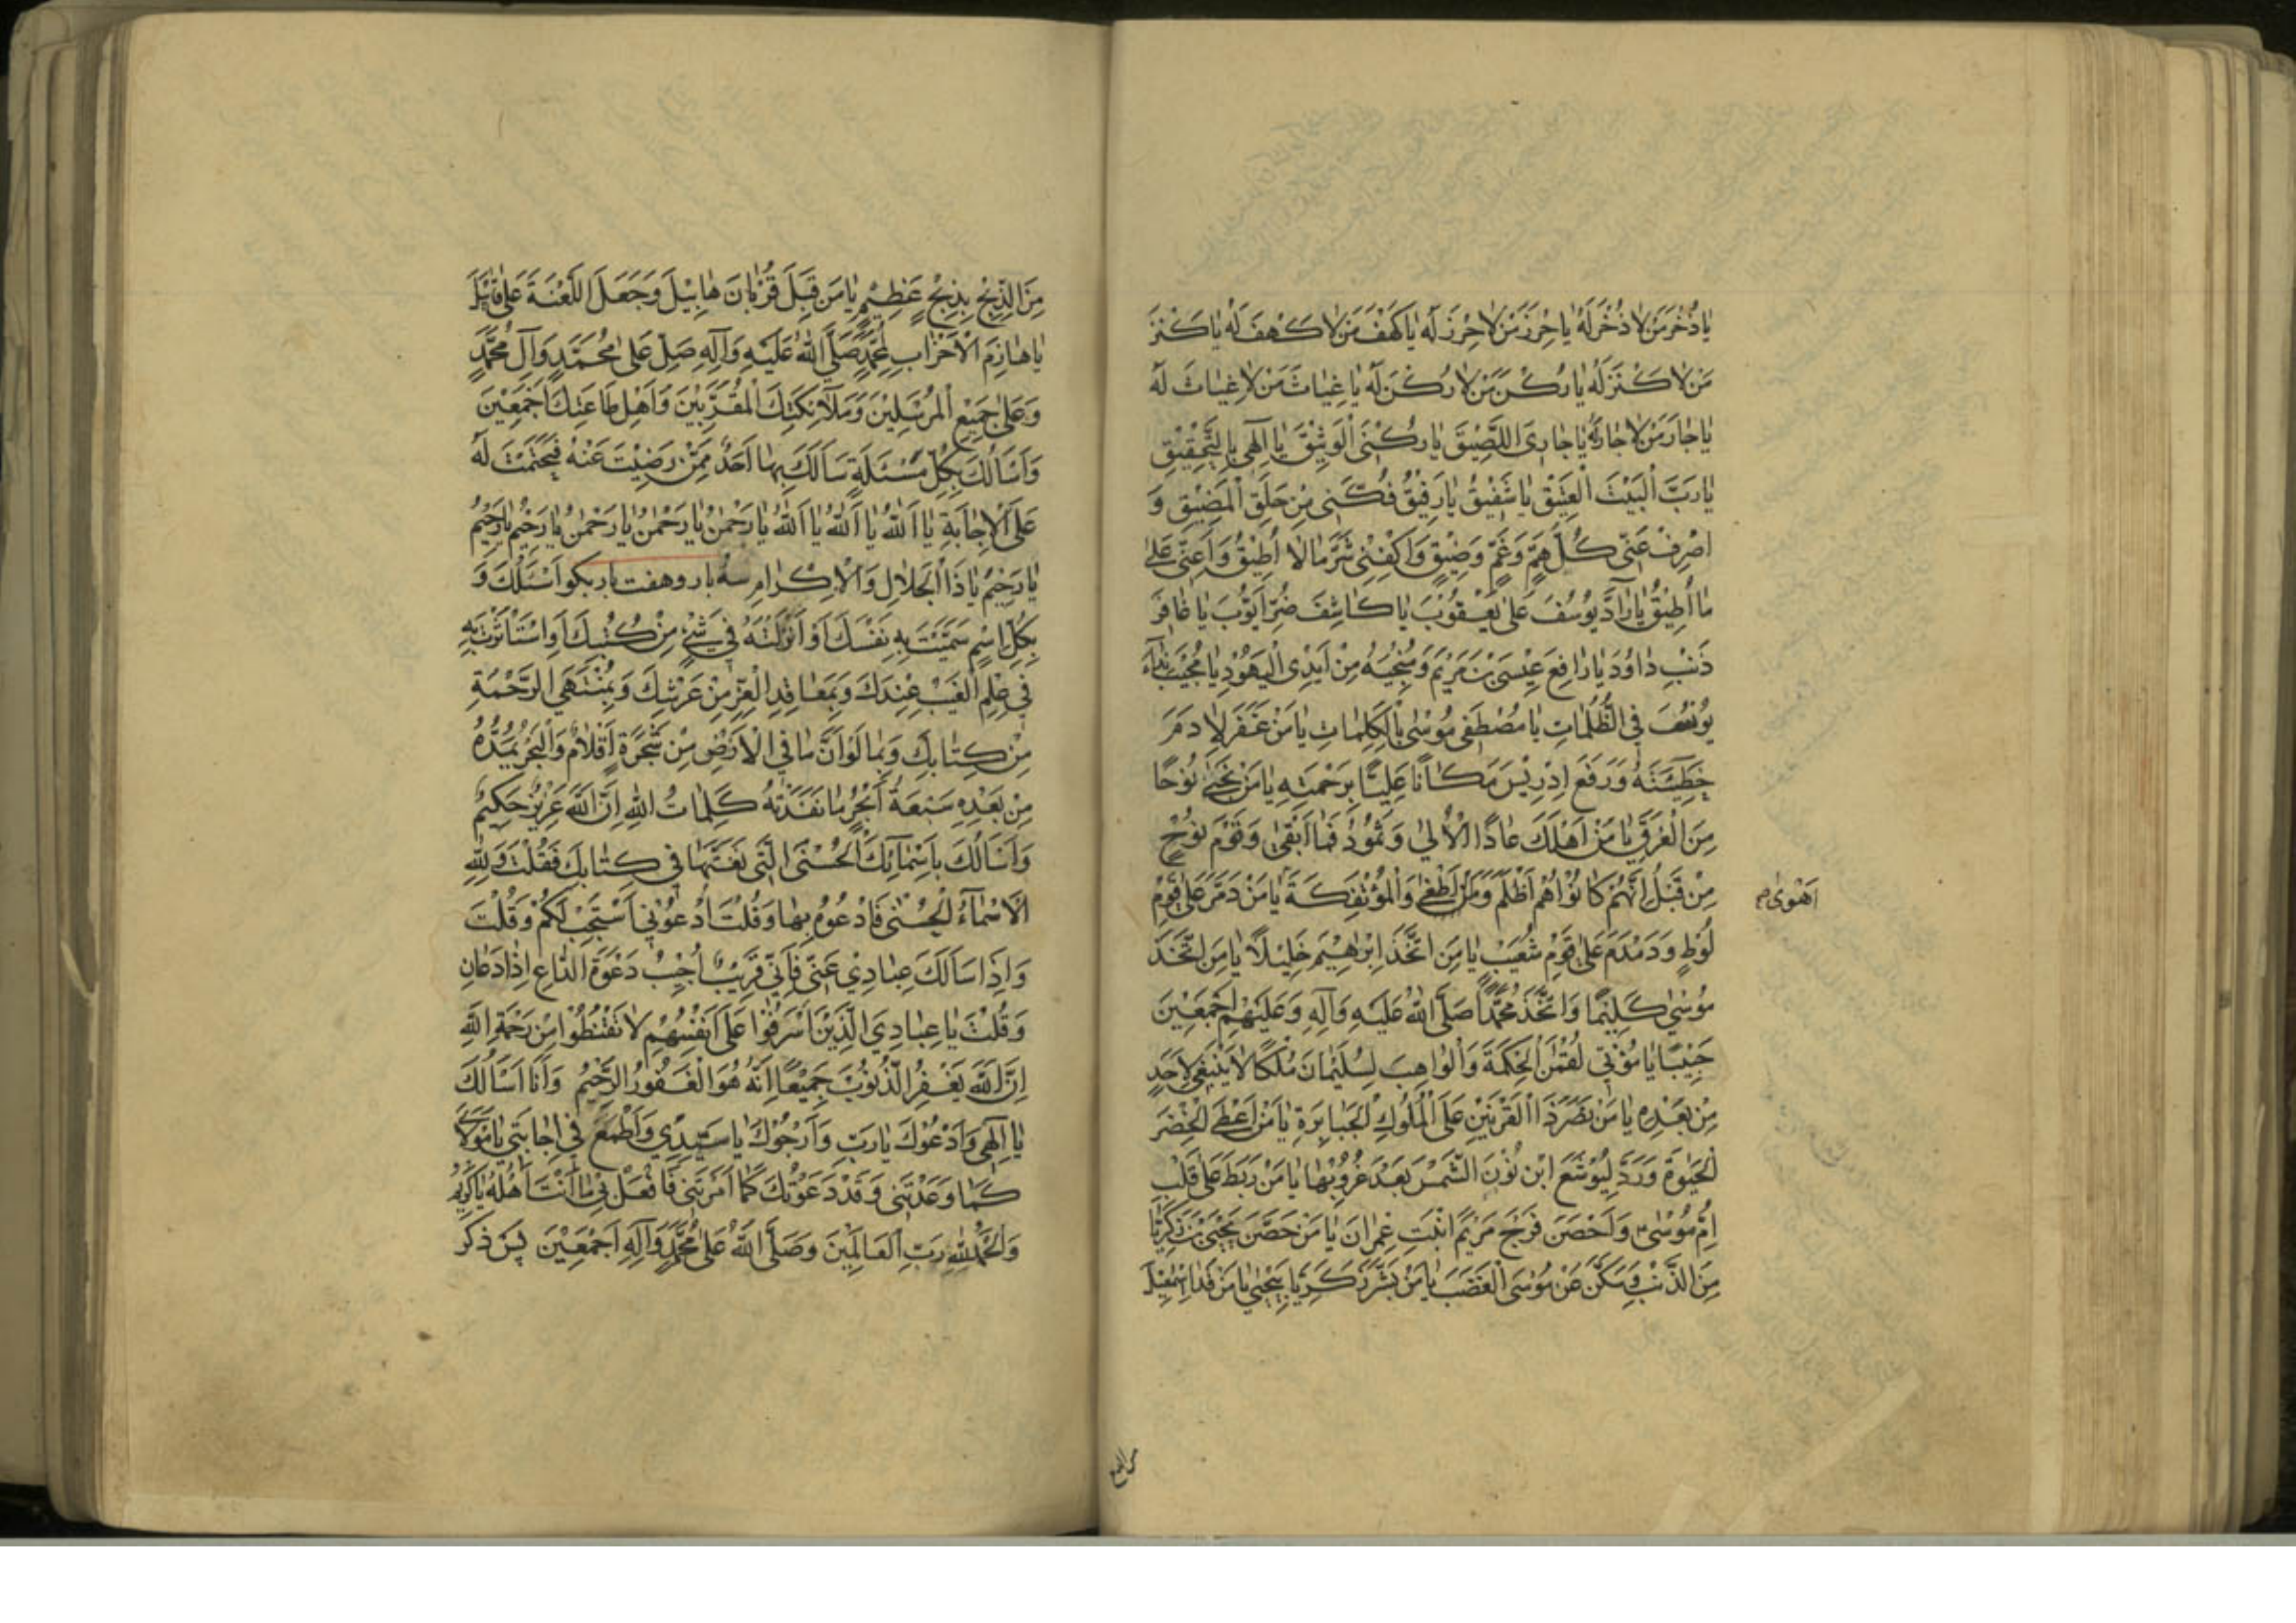 يَا ذُخْرَ مَنْ لَا ذُخْرَ لَهُ يَا حِرْزَ مَنْ لَا حِرْزَ لَهُ يَا كَهْفَ مَنْ لَا كَهْفَ لَهُ يَا كَنْزَ
مَنْ لَا كَنْزَ لَهُ يَا رُكْنَ مَنْ لَا رُكْنَ لَهُ يَا غِيَاثَ مَنْ لَا غِيَاثَ لَهُ
يَا جَارَ مَنْ لَا جَارَ لَهُ يَا جَارِىَ اللَّصِيْقَ يَا رُكْنِىَ الْوَثِيْقَ يَا اِلٰهِى بِالتَّحْقِيْقِ
يَا رَبَّ الْبَيْتِ الْعَتِيْقِ يَا شَفِيْقُ يَا رَفِيْقُ فُكَّنِى مِنْ حَلَقِ الْمَضِيْقِ وَ
اصْرِفْ عَنِّى كُلَّ هَمٍّ وَغَمٍّ وَضِيْقٍ وَاكْفِنِى شَرَّ مَا لَا اُطِيْقُ وَاَعِنِّى عَلٰى
مَا اُطِيْقُ يَا رَآدَّ يُوْسُفَ عَلٰى يَعْقُوْبَ يَا كَاشِفَ ضُرِّ اَيُّوْبَ يَا غَافِرَ
ذَنْبِ دَاوُدَ يَا رَافِعَ عِيْسَى بْنَ مَرْيَمَ وَمُنْجِيَهُ مِنْ اَيْدِى الْيَهُوْدِ يَا مُجِيْبَ نِدَآءِ
يُوْنُسَ فِى الظُّلُمَاتِ يَا مُصْطَفِى مُوْسٰى بِالْكَلِمَاتِ يَا مَنْ غَفَرَ لِاٰدَمَ
خَطِيْئَتَهُ وَرَفَعَ اِدْرِيْسَ مَكَانًا عَلِيًّا بِرَحْمَتِهِ يَا مَنْ نَجّٰى نُوْحًا
مِنَ الْغَرَقِ يَا مَنْ اَهْلَكَ عَادًا الْاُوْلٰى وَثَمُوْدَ فَمَا اَبْقٰى وَقَوْمَ نُوْحٍ
مِنْ قَبْلُ اِنَّهُمْ كَانُوْا هُمْ اَظْلَمَ وَاَطْغٰى وَالْمُؤْتَفِكَةَ يَا مَنْ دَمَّرَ عَلٰى قَوْمِ
اَهْوٰى
لُوْطٍ وَدَمْدَمَ عَلٰى قَوْمِ شُعَيْبٍ يَا مَنِ اتَّخَذَ اِبْرٰهِيْمَ خَلِيْلًا يَا مَنِ اتَّخَذَ
مُوْسٰى كَلِيْمًا وَاتَّخَذَ مُحَمَّدًا صَلَّى اللهُ عَلَيْهِ وَآلِهِ وَعَلَيْهِمْ اَجْمَعِيْنَ
حَبِيْبًا يَا مُؤْتِىَ لُقْمٰنَ الْحِكْمَةَ وَالْوَاهِبَ لِسُلَيْمَانَ مُلْكًا لَا يَنْبَغِى لِاَحَدٍ
مِنْ بَعْدِهِ يَا مَنْ نَصَرَ ذَا الْقَرْنَيْنِ عَلَى الْمُلُوْكِ الْجَبَابِرَةِ يَا مَنْ اَعْطَى الْخِضْرَ
الْحَيٰوةَ وَرَدَّ لِيُوْشَعَ ابْنِ نُوْنَ الشَّمْسَ بَعْدَ غُرُوْبِهَا يَا مَنْ رَبَطَ عَلٰى قَلْبِ
اُمِّ مُوْسٰى وَاَحْصَنَ فَرْجَ مَرْيَمَ ابْنَتِ عِمْرَانَ يَا مَنْ حَصَّنَ يَحْيَى بْنَ زَكَرِيَّا
مِنَ الذَّنْبِ وَسَكَّنَ عَنْ مُوْسَى الْغَضَبَ يَا مَنْ بَشَّرَ زَكَرِيَّا بِيَحْيٰى يَا مَنْ فَدَا اِسْمٰعِيْلَ
مِنَ الذَّبْحِ بِذِبْحٍ عَظِيْمٍ يَا مَنْ قَبِلَ قُرْبَانَ هَابِيْلَ وَجَعَلَ اللَّعْنَةَ عَلٰى قَابِيْلَ
يَا هَازِمَ الْاَحْزَابِ لِمُحَمَّدٍ صَلَّى اللهُ عَلَيْهِ وَآلِهِ صَلِّ عَلٰى مُحَمَّدٍ وَآلِ مُحَمَّدٍ
وَعَلٰى جَمِيْعِ الْمُرْسَلِيْنَ وَمَلَآئِكَتِكَ الْمُقَرَّبِيْنَ وَاَهْلِ طَاعَتِكَ اَجْمَعِيْنَ
وَاَسْاَلُكَ بِكُلِّ مَسْئَلَةٍ سَاَلَكَ بِهَا اَحَدٌ مِمَّنْ رَضِيْتَ عَنْهُ فَحَتَمْتَ لَهُ
عَلَى الْاِجَابَةِ يَا اَللهُ يَا اَللهُ يَا اَللهُ يَا رَحْمٰنُ يَا رَحْمٰنُ يَا رَحْمٰنُ يَا رَحِيْمُ يَا رَحِيْمُ
يَا رَحِيْمُ يَا ذَا الْجَلَالِ وَالْاِكْرَامِ سه بار و هفت بار بكو اَسْئَلُكَ وَ
بِكُلِّ اِسْمٍ سَمَّيْتَ بِهِ نَفْسَكَ اَوْ اَنْزَلْتَهُ فِى شَىْءٍ مِنْ كُتُبِكَ اَوِ اسْتَأْثَرْتَ بِهِ
فِى عِلْمِ الْغَيْبِ عِنْدَكَ وَبِمَعَاقِدِ الْعِزِّ مِنْ عَرْشِكَ وَبِمُنْتَهَى الرَّحْمَةِ
مِنْ كِتَابِكَ وَبِمَا لَوْ اَنَّ مَا فِى الْاَرْضِ مِنْ شَجَرَةٍ اَقْلَامٌ وَالْبَحْرُ يَمُدُّهُ
مِنْ بَعْدِهِ سَبْعَةُ اَبْحُرٍ مَا نَفِدَتْ كَلِمَاتُ اللهِ اِنَّ اللهَ عَزِيْزٌ حَكِيْمٌ
وَاَسْاَلُكَ بِاَسْمَآئِكَ الْحُسْنَى الَّتِى نَعَتَّهَا فِى كِتَابِكَ فَقُلْتَ وَلِلّٰهِ
الْاَسْمَآءُ الْحُسْنٰى فَادْعُوْهُ بِهَا وَقُلْتَ اُدْعُوْنِى اَسْتَجِبْ لَكُمْ وَقُلْتَ
وَاِذَا سَاَلَكَ عِبَادِى عَنِّى فَاِنِّى قَرِيْبٌ اُجِيْبُ دَعْوَةَ الدَّاعِ اِذَا دَعَانِ
وَقُلْتَ يَا عِبَادِىَ الَّذِيْنَ اَسْرَفُوْا عَلٰى اَنْفُسِهِمْ لَا تَقْنَطُوْا مِنْ رَحْمَةِ اللهِ
اِنَّ اللهَ يَغْفِرُ الذُّنُوْبَ جَمِيْعًا اِنَّهُ هُوَ الْغَفُوْرُ الرَّحِيْمُ وَاَنَا اَسْاَلُكَ
يَا اِلٰهِى وَاَدْعُوْكَ يَا رَبِّ وَاَرْجُوْكَ يَا سَيِّدِى وَاَطْمَعُ فِى اِجَابَتِى يَا مَوْلَاىَ
كَمَا وَعَدْتَنِى وَقَدْ دَعَوْتُكَ كَمَا اَمَرْتَنِى فَافْعَلْ بِى مَا اَنْتَ اَهْلُهُ يَا كَرِيْمُ
وَالْحَمْدُ لِلّٰهِ رَبِّ الْعَالَمِيْنَ وَصَلَّى اللهُ عَلٰى مُحَمَّدٍ وَآلِهِ اَجْمَعِيْنَ پس ذكر